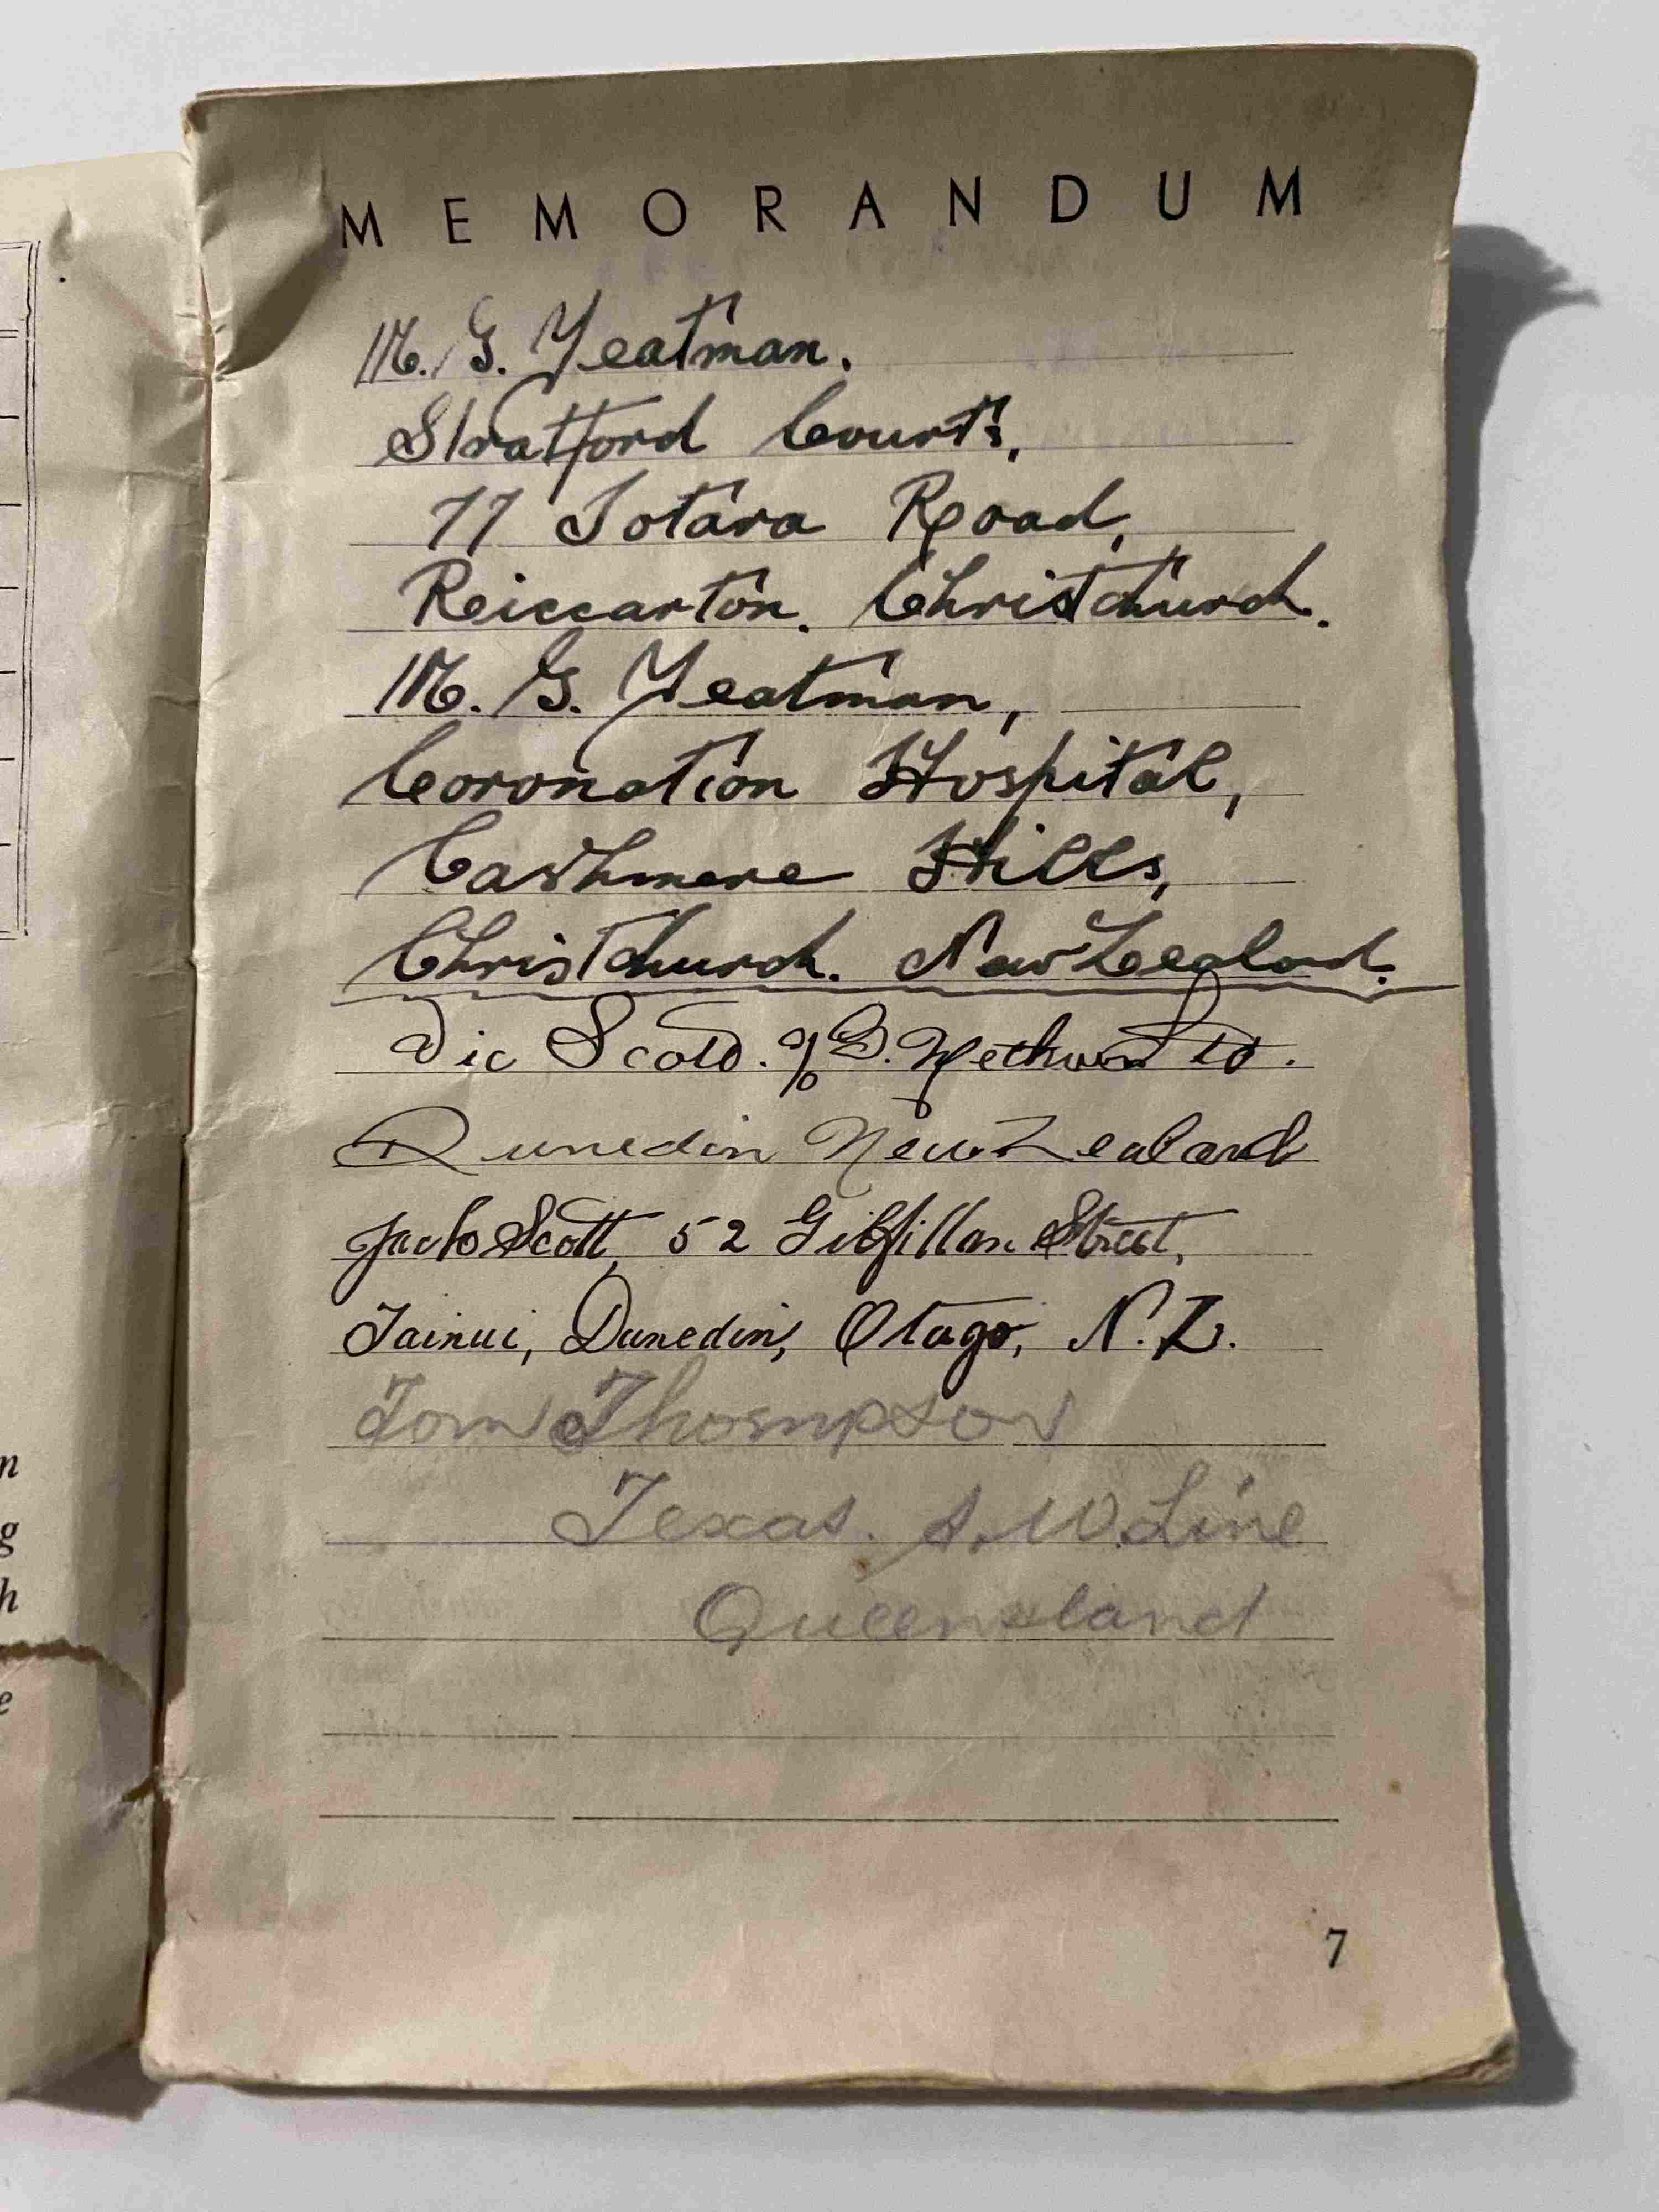 MEMORANDUM
M. G. Yeatman.
Stratford Courts,
77 Totara Road,
Reiccarton. Christchurch.
M. G. Yeatman,
Coronation Hospital,
Cashmere Hills,
Christchurch. New Zealand.
Vic Scott. c/o
Dunedin New Zealand
Jack Scott, 52 Gilfillan Street,
Tainui, Dunedin, Otago, N.Z.
Tom Thompson
Texas. S.W. Line
Queensland
7
n
g
h
e